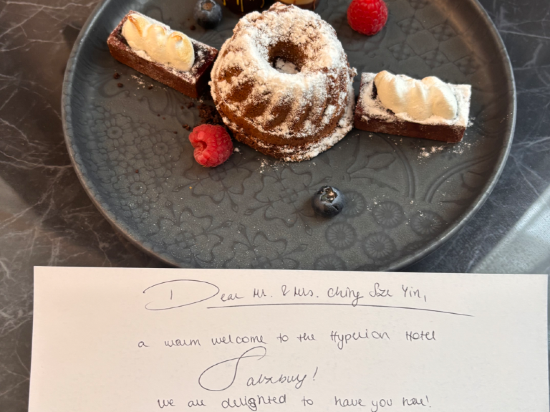 Dear Mr. & Mrs. Ching Sze Yin,
a warm welcome to the Hyperion Hotel
Salzburg!
we are delighted to have you here!